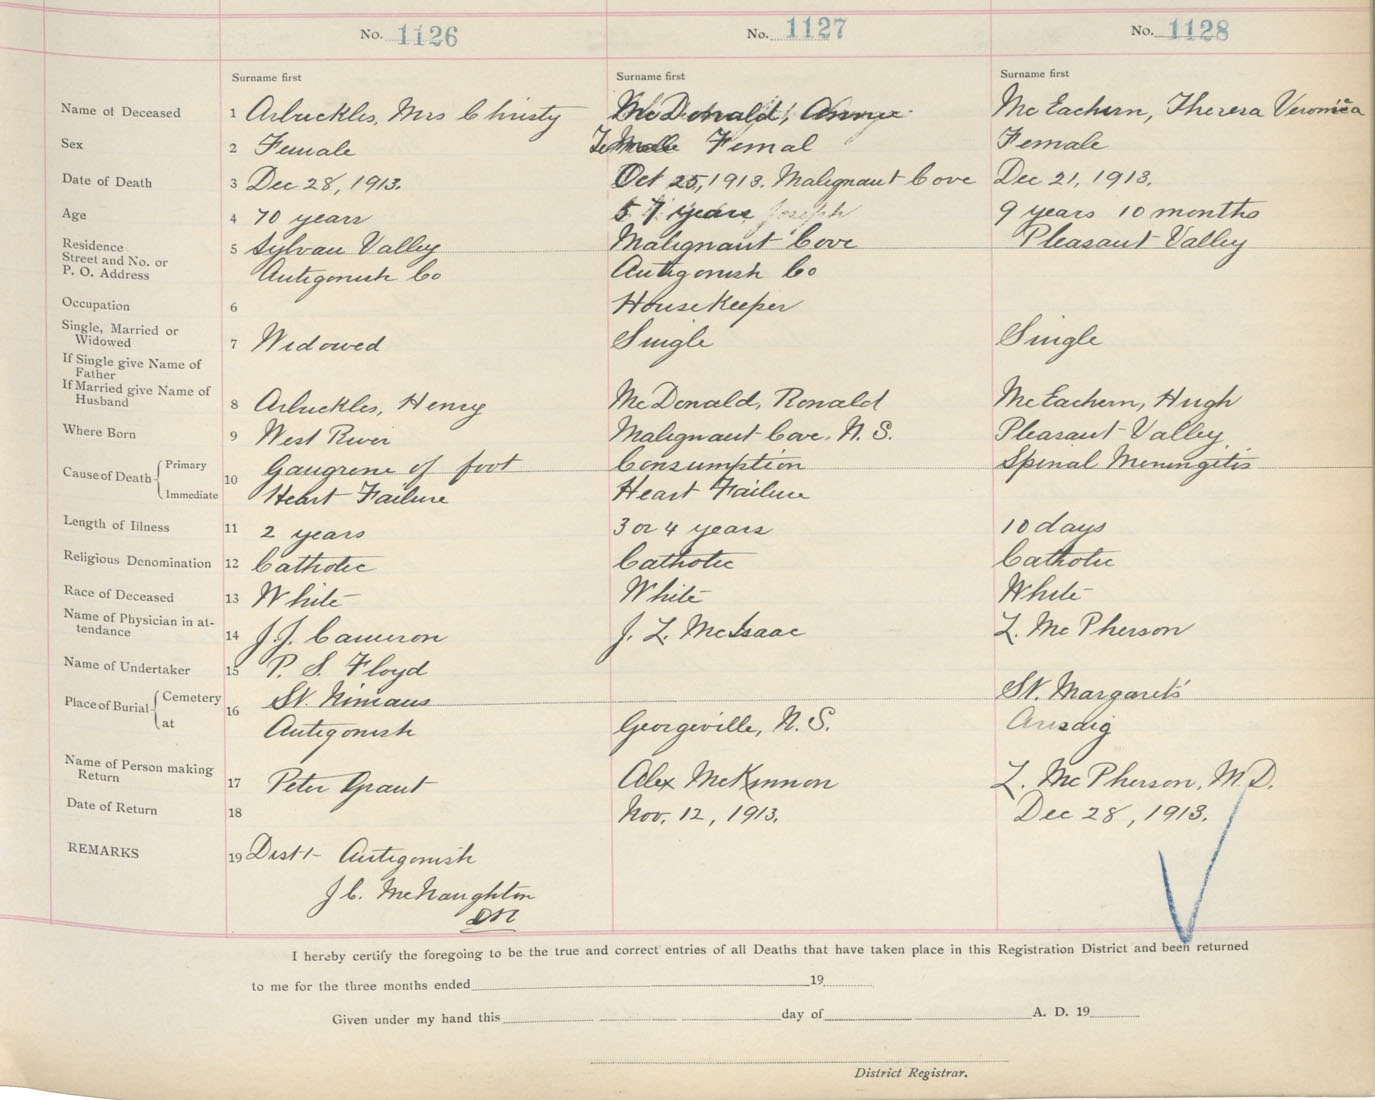 No. 1126 No. 1127 No. 1128
Surname first Surname first Surname first
Name of Deceased 1 Arbuckles, Mrs Christy McDonald, Annie McEachern, Theresa Veronica
Sex 2 Female Female Femal Female
Date of Death 3 Dec 28, 1913. Oct 25, 1913. Malignant Cove Dec 21, 1913.
Age 4 70 years 57 years Joseph 9 years 10 months
Residence
Street and No. or
P. O. Address
5 Sylvan Valley Malignant Cove Pleasant Valley
Antigonish Co Antigonish Co
Occupation 6 HouseKeeper
Single, Married or
Widowed 7 Widowed Single Single
If Single give Name of
Father
If Married give Name of
Husband 8 Arbuckles, Henry McDonald, Ronald McEachern, Hugh
Where Born 9 West River Malignant Cove, N.S. Pleasant Valley
Cause of Death Primary 10 Gangrene of foot Consumption Spinal Meningitis
Immediate Heart Failure Heart Failure
Length of Illness 11 2 years 3 or 4 years 10 days
Religious Denomination 12 Catholic Catholic Catholic
Race of Deceased 13 White White White
Name of Physician in at-
tendance 14 J.J. Cameron J. L. McIsaac L. McPherson
Name of Undertaker 15 P. S. Floyd
Place of Burial Cemetery 16 St. Ninians St. Margarets
at Antigonish Georgeville, N.S. Arisaig
Name of Person making
Return 17 Peter Grant Alex McKinnon L. McPherson, M.D.
Date of Return 18 Nov. 12, 1913. Dec 28, 1913.
REMARKS 19 Dist 1- Antigonish
J C. McNaughton
DR
I hereby certify the foregoing to be the true and correct entries of all Deaths that have taken place in this Registration District and been returned
to me for the three months ended 19
Given under my hand this day of A. D. 19
District Registrar.